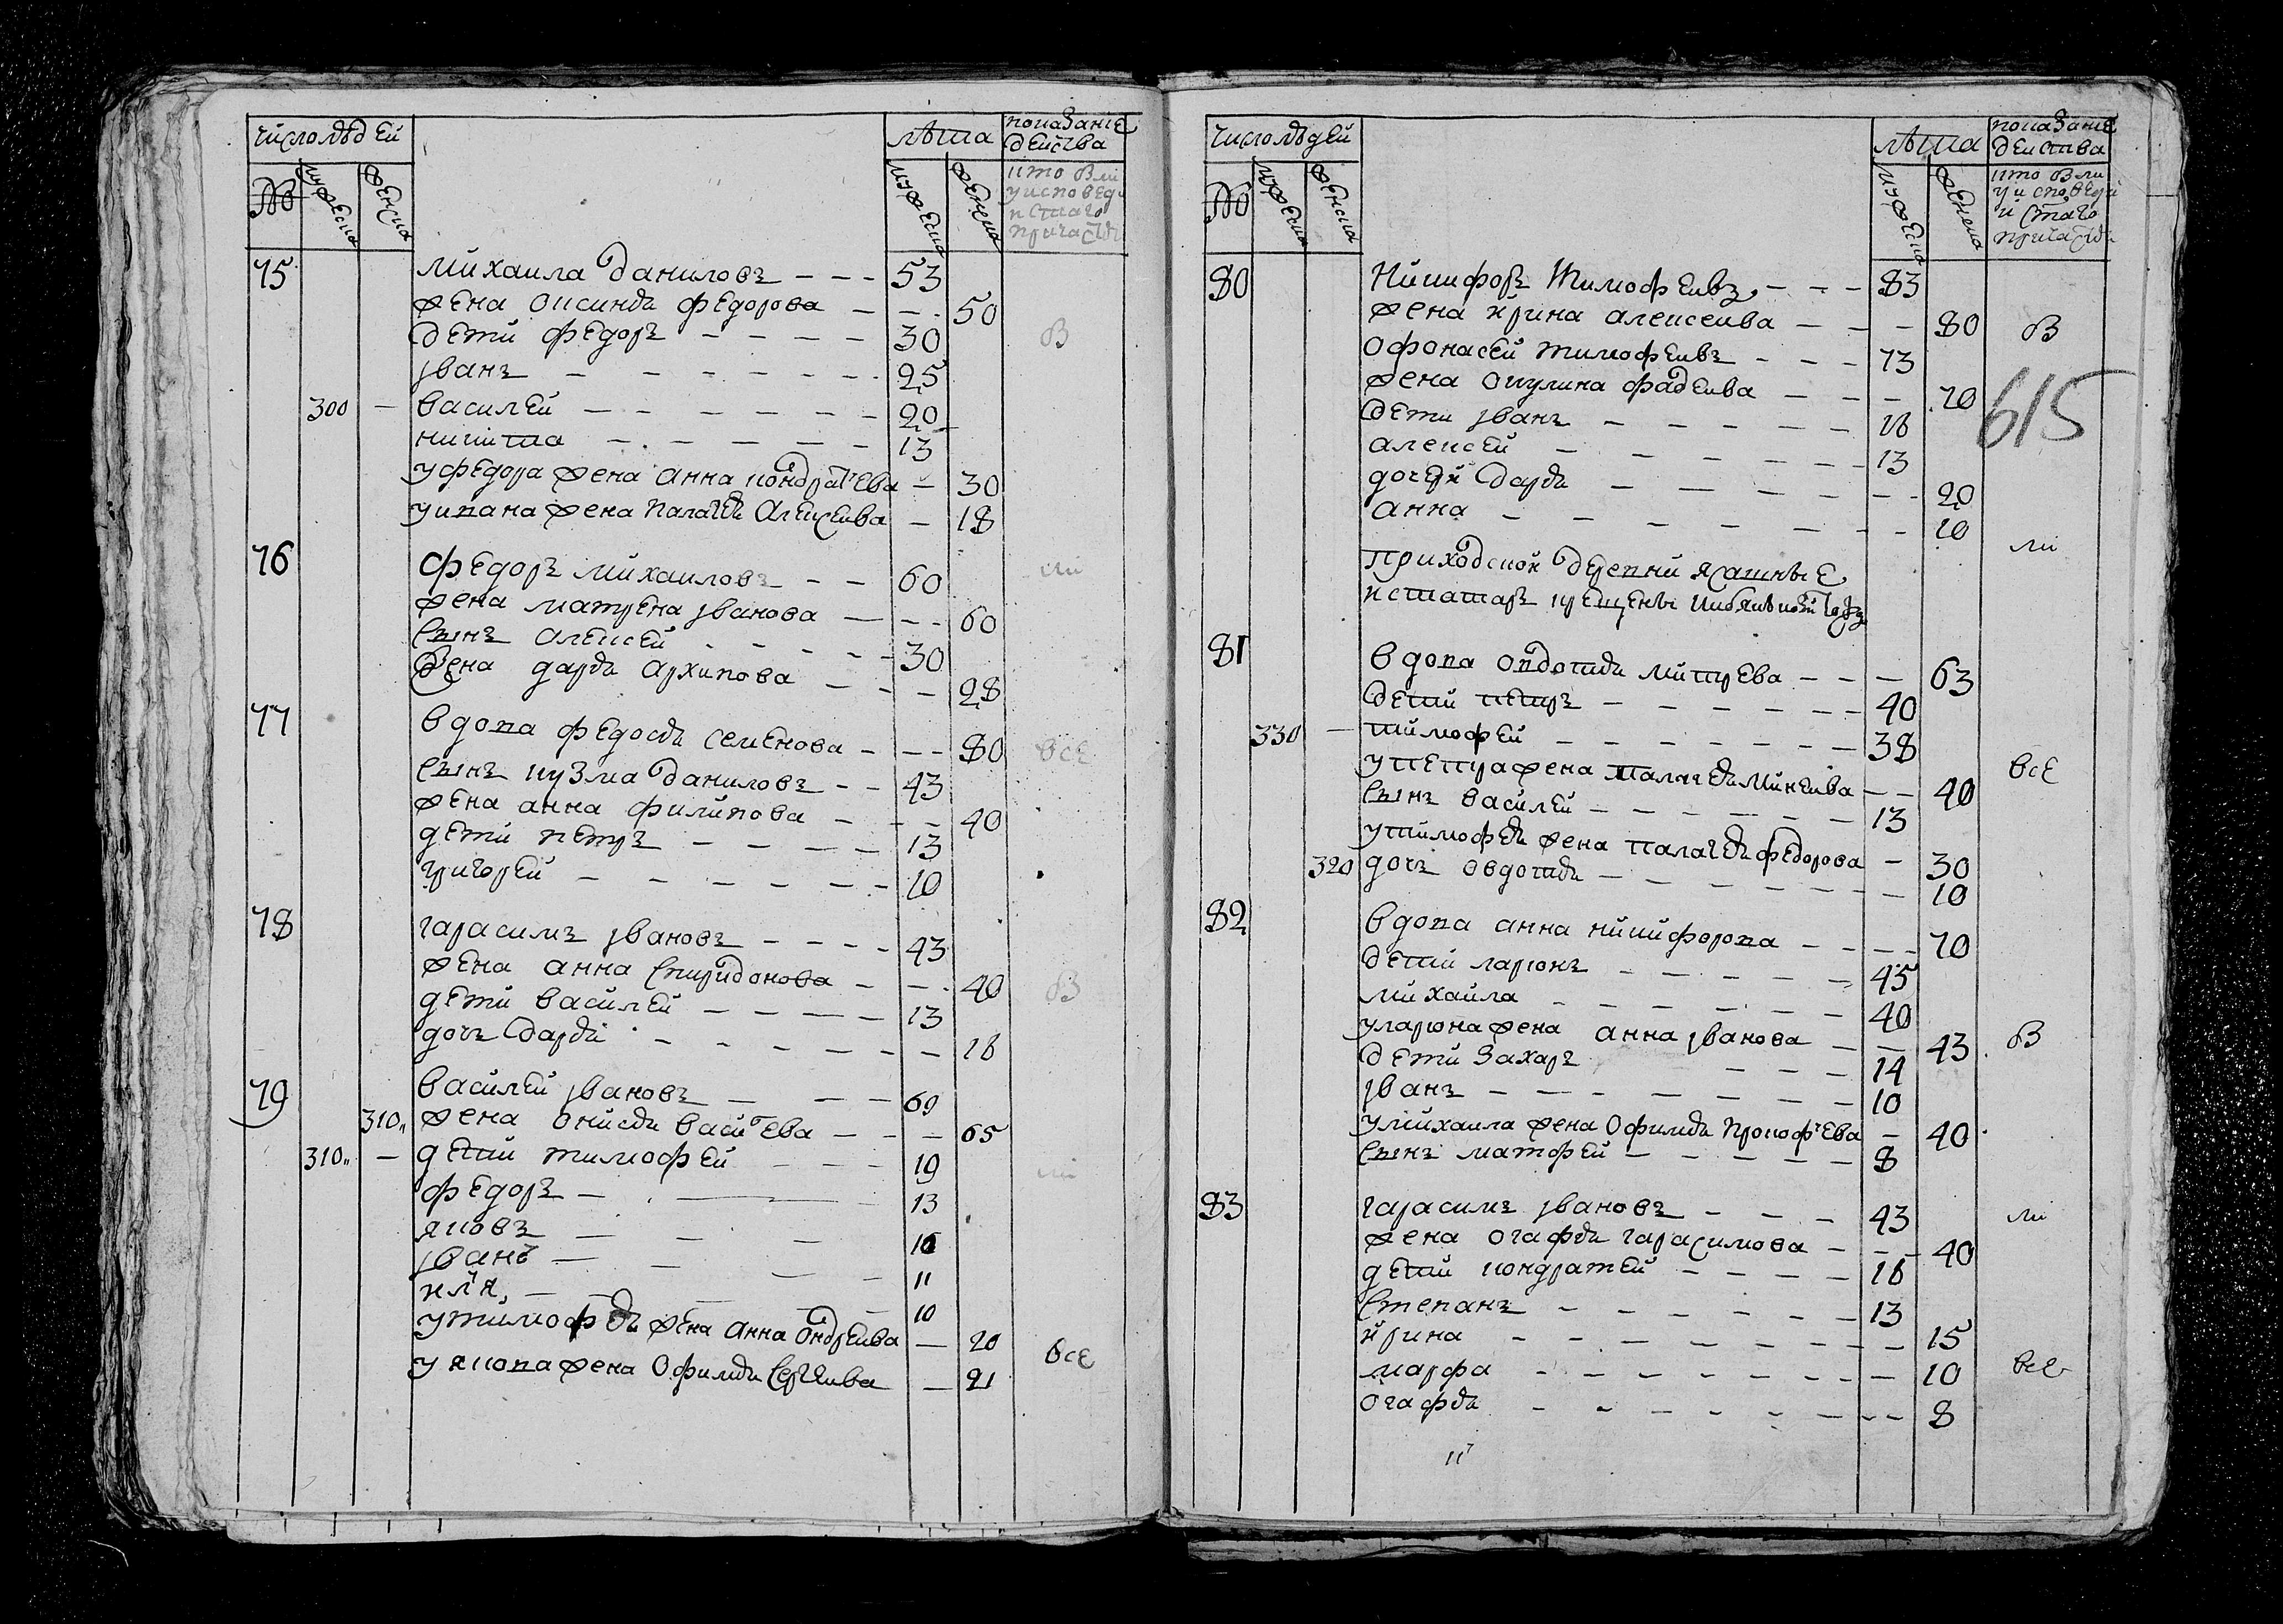 число людей
лѣта
показание
действа
№
мужеска
женска
мужеска
женска
кто были
у исповеди
и стаго
причастия
75 михаила даниловъ - - - 53
жена оксинья федорова - - - 50
дети федоръ - - - - 30
Iванъ - - - - - - 25
300 - василей - - - - - - 20
никита - - - - - - 13
у федора жена анна кондратьева - 30
у ивана жена палагея алексеива - 18
в
76 федоръ михаиловъ - - 60
жена матрена Iванова - - - 60
сынъ алексей - - - - - 30
жена дарья архипова - - - 28
ли
77 вдова федосья семенова - - - 80
сынъ кузма даниловъ - - 43
жена анна филипова - - - 40
дети петръ - - - - - 13
григорей - - - - - - 10
все
78 гарасимъ Iвановъ - - - - 43
жена анна спиридонова - - - 40
дети василей - - - - 13
дочь дарья - - - - - - 18
в
79 василей Iвановъ - - - 69
310„ жена онисья васильева - - - 65
310„ - дети тимофей - - - 19
федоръ - - 13
яковъ - - -
Iванъ - - - - 11
илья - - - - 10
у тимофея жена анна ондреива - 20
у якова жена офимья сергеива - 21
ли
все
число людей
лѣта
показание
действа
№
мужеска
женска
мужеска
женска
кто были
у исповеди
и стаго
причастия
80 Никифоръ Тимофеивъ - - - 83
жена ирина алексеива - - - 80
офонасей тимофеивъ - - - 73
жена окулина фадеива - - - 70
дети Iванъ - - - - - 18
алексей - - - - - - 13
дочери дарья - - - - - - 20
анна - - - - - - - 10
в
615
приходской деревни ясашные
из татаръ крещены
ли
81 вдова овдотья митрева - - - 63
дети петръ - - - - - - 40
330 - тимофей - - - - - - - 38
у петра жена палагея минеива - - 40
сынъ василей - - - - - - 13
у тимофея жена палагея федорова - 30
320 дочь овдотья - - - - - - - 10
все
82 вдова анна никифорова - - - - 70
дети ларионъ - - - - - 45
михаила - - - - - - 40
у лариона жена анна Iванова - - 43
дети захаръ - - - 14
Iванъ - - - - - - - 10
у михаила жена офимья прокофьева - 40
сынъ матфей - - - - - 8
в
83 гарасимъ Iвановъ - - - 43
жена огафья гарасимова - - - 40
дети кондратей - - - - 18
степанъ - - - - - - 13
ирина - - - - - - - 15
марфа - - - - - - - 10
огафья - - - - - - - - 8
ли
все